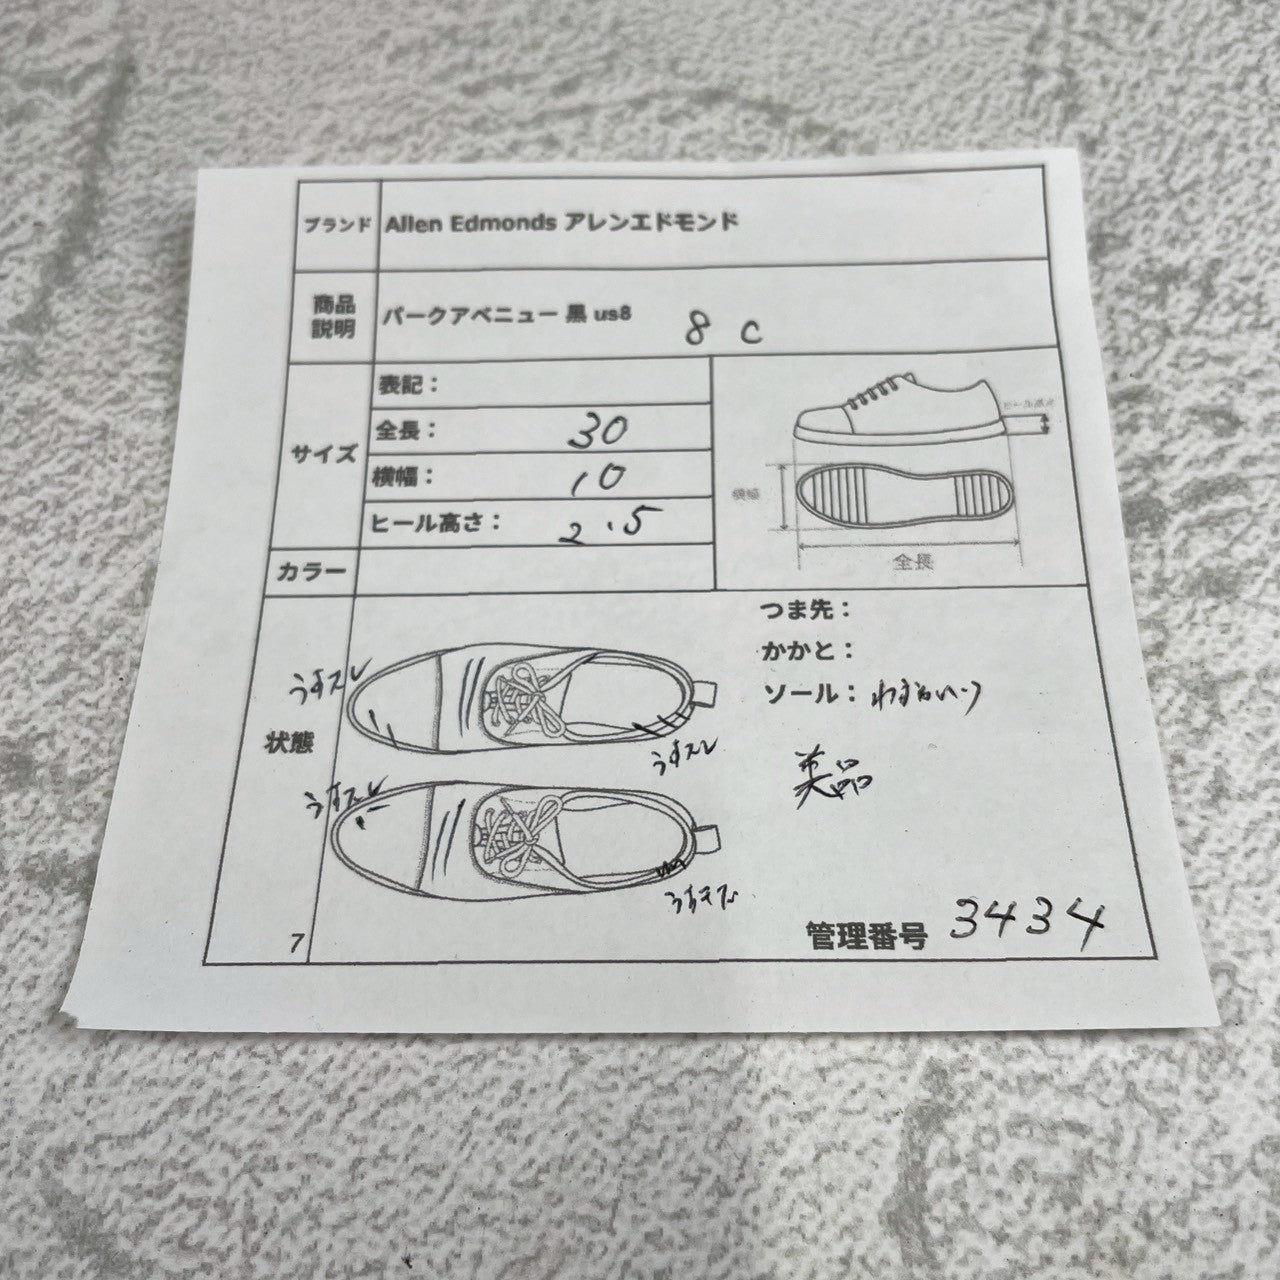 ブランド Allen Edmonds アレンエドモンド
商品説明 パークアベニュー 黒 us8 8 C
サイズ
表記：
全長： 30
横幅： 10
ヒール高さ： 2.5
ヒール高さ
横幅
全長
カラー
状態
つま先：
かかと：
ソール：
うすスレ
うすスレ
うすスレ
うすスレ
美品
7
管理番号 3434